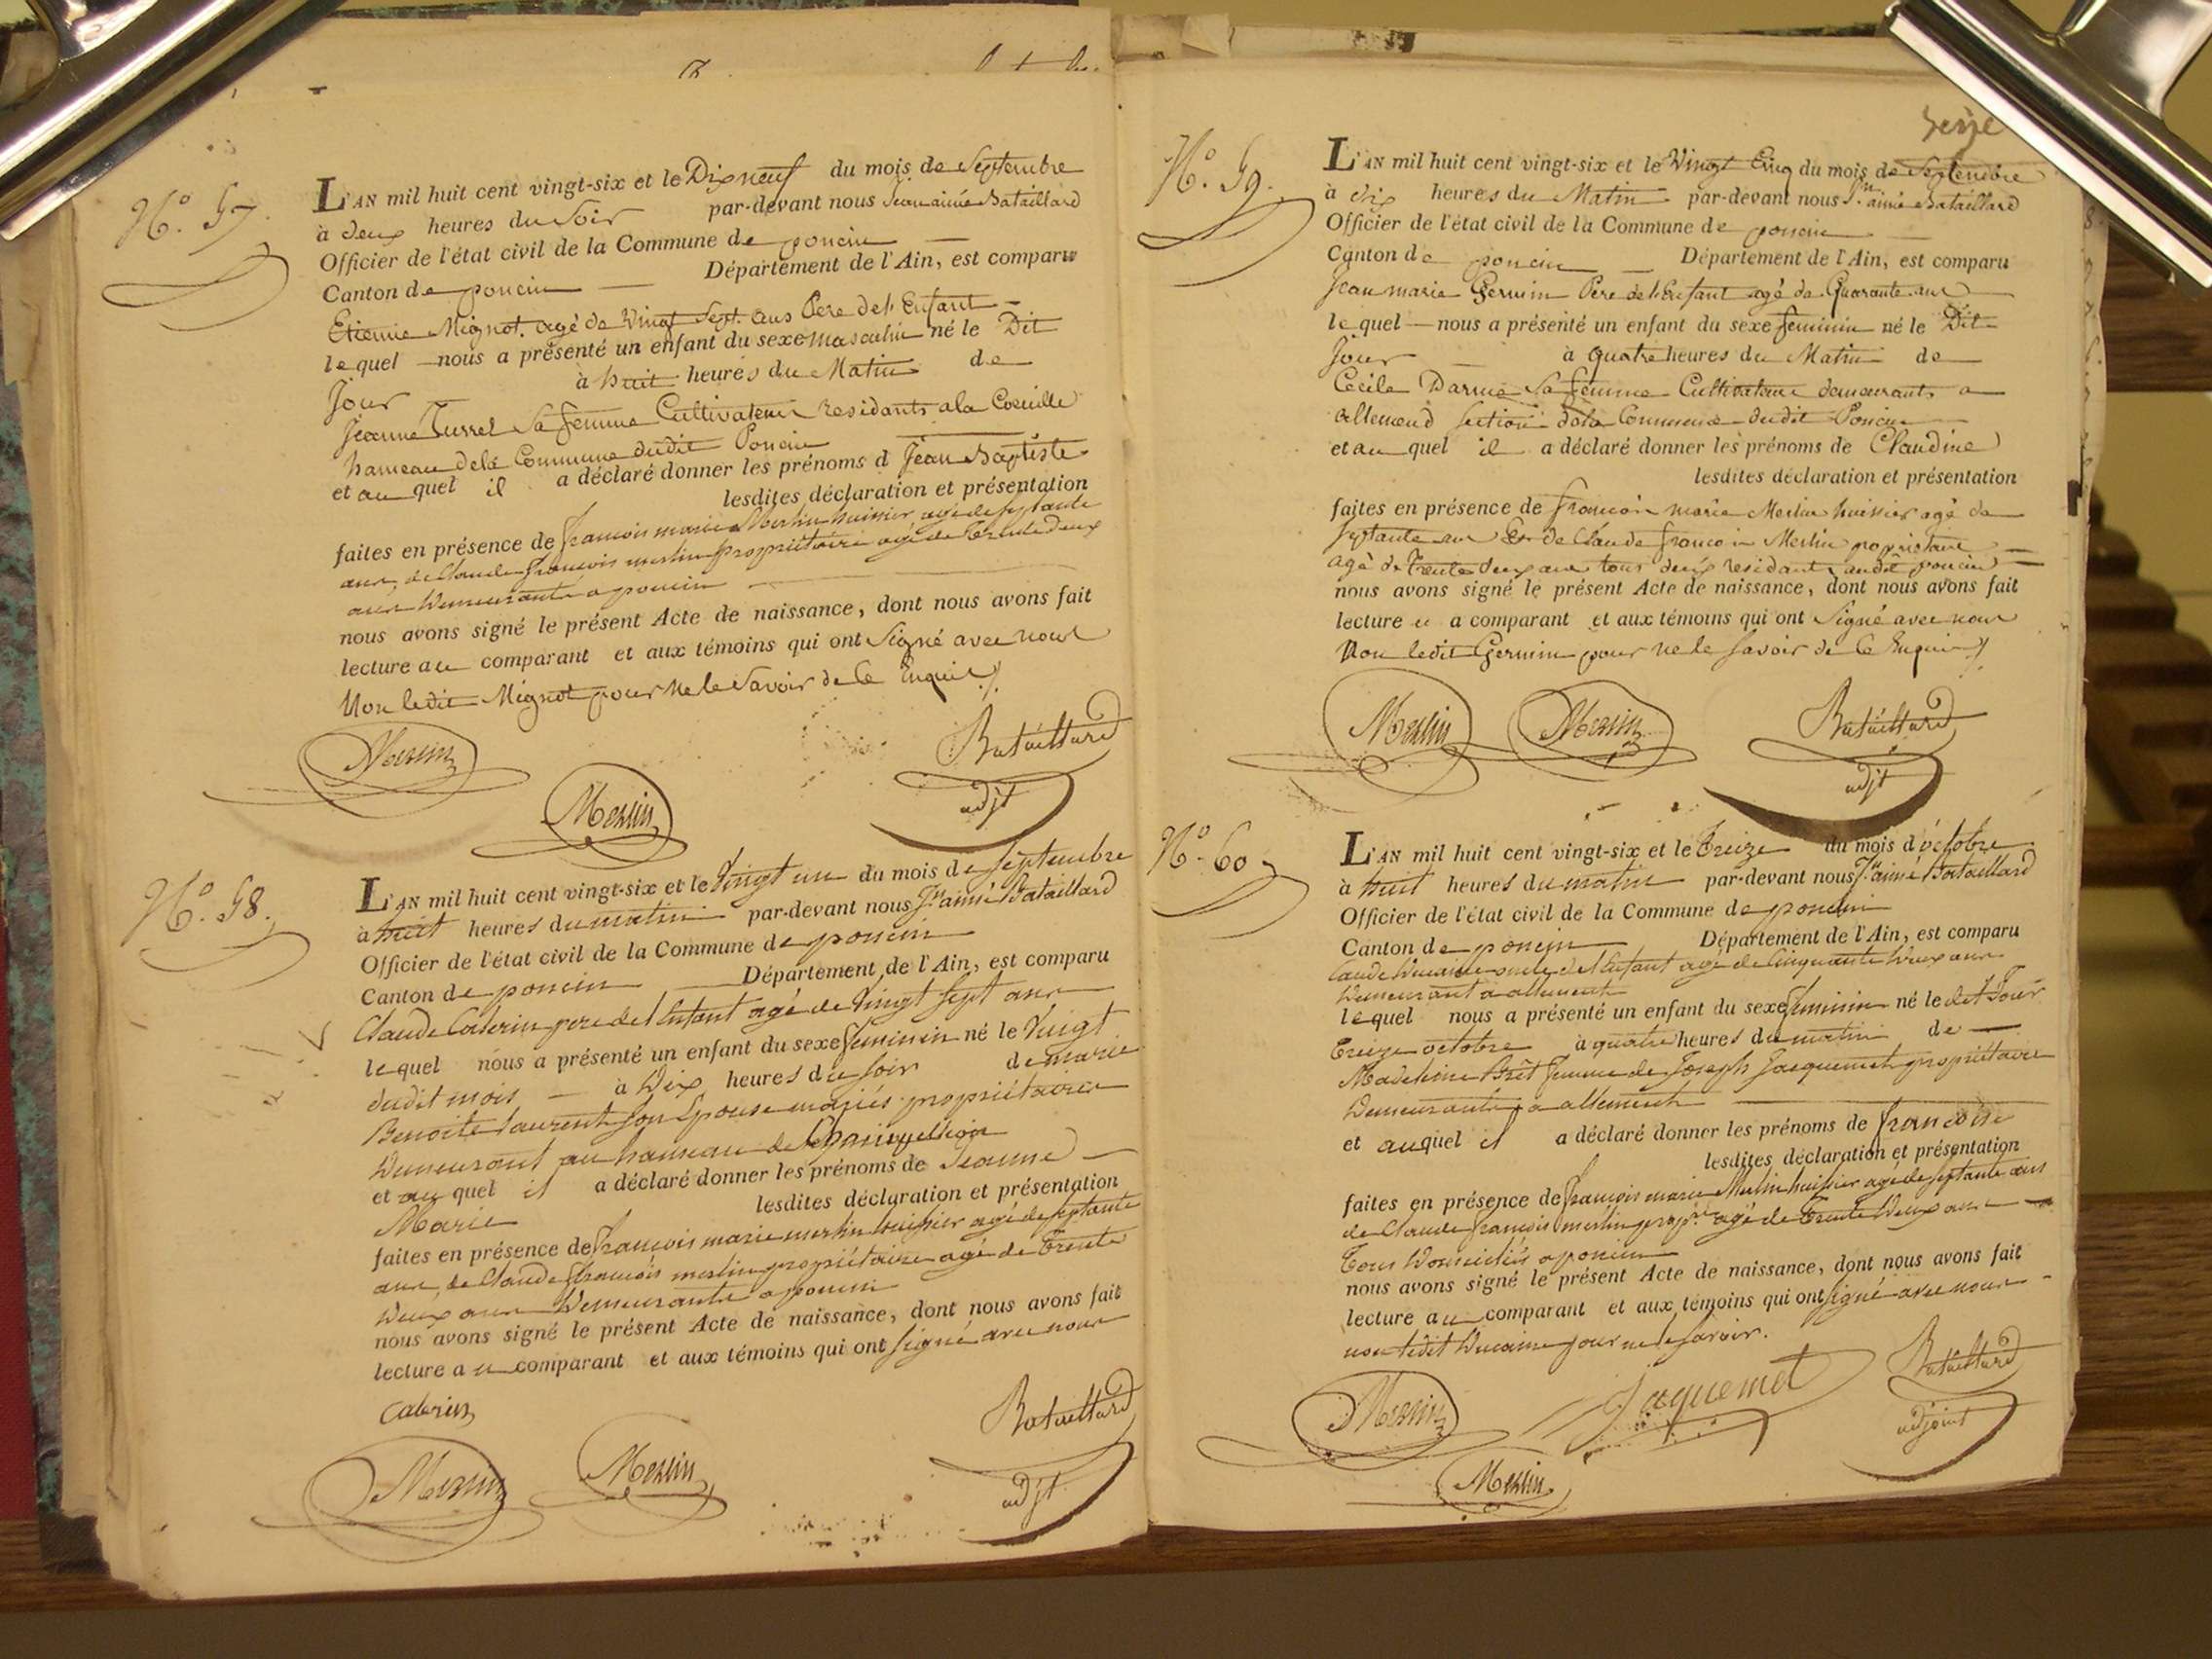 N.o 57.
L'AN mil huit cent vingt-six et le Dix neuf du mois de Septembre
à deux heures du Soir par-devant nous Jean aimé Bataillard
Officier de l'état civil de la Commune de poncin
Canton de poncin Département de l'Ain, est comparu
Etienne Mignot agé de Vingt Sept ans Pere de l'Enfant
lequel nous a présenté un enfant du sexe masculin né le Dit
Jour à huit heures du Matin de
Jeanne Turrel Sa femme Cultivateurs residants a la
hameau de la Commune dudit Poncin
et au quel il a déclaré donner les prénoms d Jean Baptiste
lesdites déclaration et présentation
faites en présence de francois marie Merlin huissier agé de septante
ans, de Claude francois merlin propriétaire agé de Trente Deux
ans Demeurants a poncin
nous avons signé le présent Acte de naissance, dont nous avons fait
lecture au comparant et aux témoins qui ont Signé avec nous
Non ledit Mignot pour ne le Savoir de Ce Enquis
Merlin
Merlin
Bataillard
adjt
N.o 58.
L'AN mil huit cent vingt-six et le Vingt un du mois de septembre
à huit heures du matin par-devant nous Jn aimé Bataillard
Officier de l'état civil de la Commune de poncin
Canton de poncin Département de l'Ain, est comparu
Claude Caterin pere de l'Enfant agé de Vingt Sept ans
lequel nous a présenté un enfant du sexe feminin né le Vingt
dudit mois à Dix heures du soir de marie
Benoite laurent son Epouse mariés propriétaires
Demeurant au hameau de
et au quel il a déclaré donner les prénoms de Jeanne
Marie lesdites déclaration et présentation
faites en présence de francois marie merlin huissier agé de septante
ans, de Claude francois merlin propriétaire agé de Trente
Deux ans Demeurants a poncin
nous avons signé le présent Acte de naissance, dont nous avons fait
lecture au comparant et aux témoins qui ont signé avec nous
Caterin
Merlin
Merlin
Bataillard
adjt
Seize
N.o 59.
L'AN mil huit cent vingt-six et le Vingt Cinq du mois de Septembre
à dix heures du Matin par-devant nous Jn aimé Bataillard
Officier de l'état civil de la Commune de poncin
Canton de poncin Département de l'Ain, est comparu
Jean marie Gernin Pere de l'Enfant agé de Quarante ans
lequel nous a présenté un enfant du sexe feminin né le Dit
Jour à quatre heures du Matin de
Cecile Darme Sa femme Cultivateurs demeurants a
allemend Section de la Commune dudit Poncin
et au quel il a déclaré donner les prénoms de Claudine
lesdites déclaration et présentation
faites en présence de francois marie Merlin huissier agé de
septante ans Et de Claude francois Merlin proprietaire
agé de Trente deux ans tous deux residants audit poncin
nous avons signé le présent Acte de naissance, dont nous avons fait
lecture a comparant et aux témoins qui ont Signé avec nous
Non ledit Gernin pour ne le Savoir de Ce Enquis
Merlin
Merlin
Bataillard
adjt
N.o 60
L'AN mil huit cent vingt-six et le Treize du mois d'octobre
à huit heures du matin par-devant nous Jn aimé Bataillard
Officier de l'état civil de la Commune de poncin
Canton de poncin Département de l'Ain, est comparu
Claude Ducaine oncle de l'Enfant agé de Cinquante Deux ans
Demeurant a allement
lequel nous a présenté un enfant du sexe feminin né le dit Jour
Treize octobre à quatre heures du matin de
Madeleine Brêt femme de Joseph Jacquemet propriétaire
Demeurants a allement
et auquel il a déclaré donner les prénoms de francoise
lesdites déclaration et présentation
faites en présence de francois marie Merlin huissier agé de septante ans
de Claude francois merlin propre agé de Trente Deux ans
Tous Domiciliés a poncin
nous avons signé le présent Acte de naissance, dont nous avons fait
lecture au comparant et aux témoins qui ont signé avec nous
non ledit Ducaine pour ne le savoir.
Merlin
Jaquemet
Bataillard
adjoint
Merlin